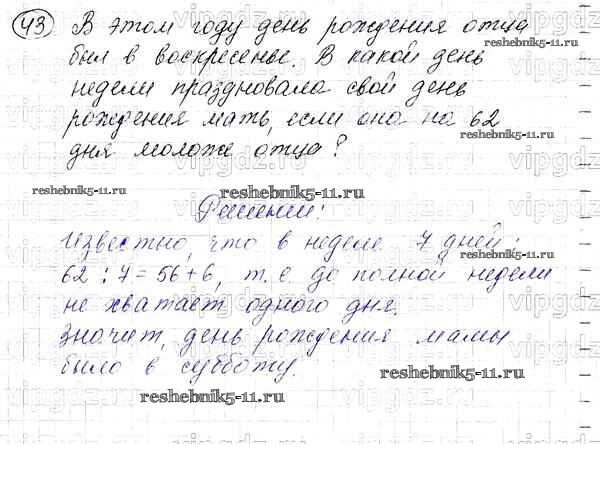 43 В этом году день рождения отца
был в воскресенье. В какой день
недели праздновала свой день
рождения мать, если она на 62
дня моложе отца?
Решение:
Известно, что в неделе 7 дней:
62 : 7 = 56 + 6, т.е. до полной недели
не хватает одного дня.
Значит, день рождения мамы
было в субботу.
reshebnik5-11.ru
reshebnik5-11.ru
reshebnik5-11.ru
reshebnik5-11.ru
reshebnik5-11.ru
reshebnik5-11.ru